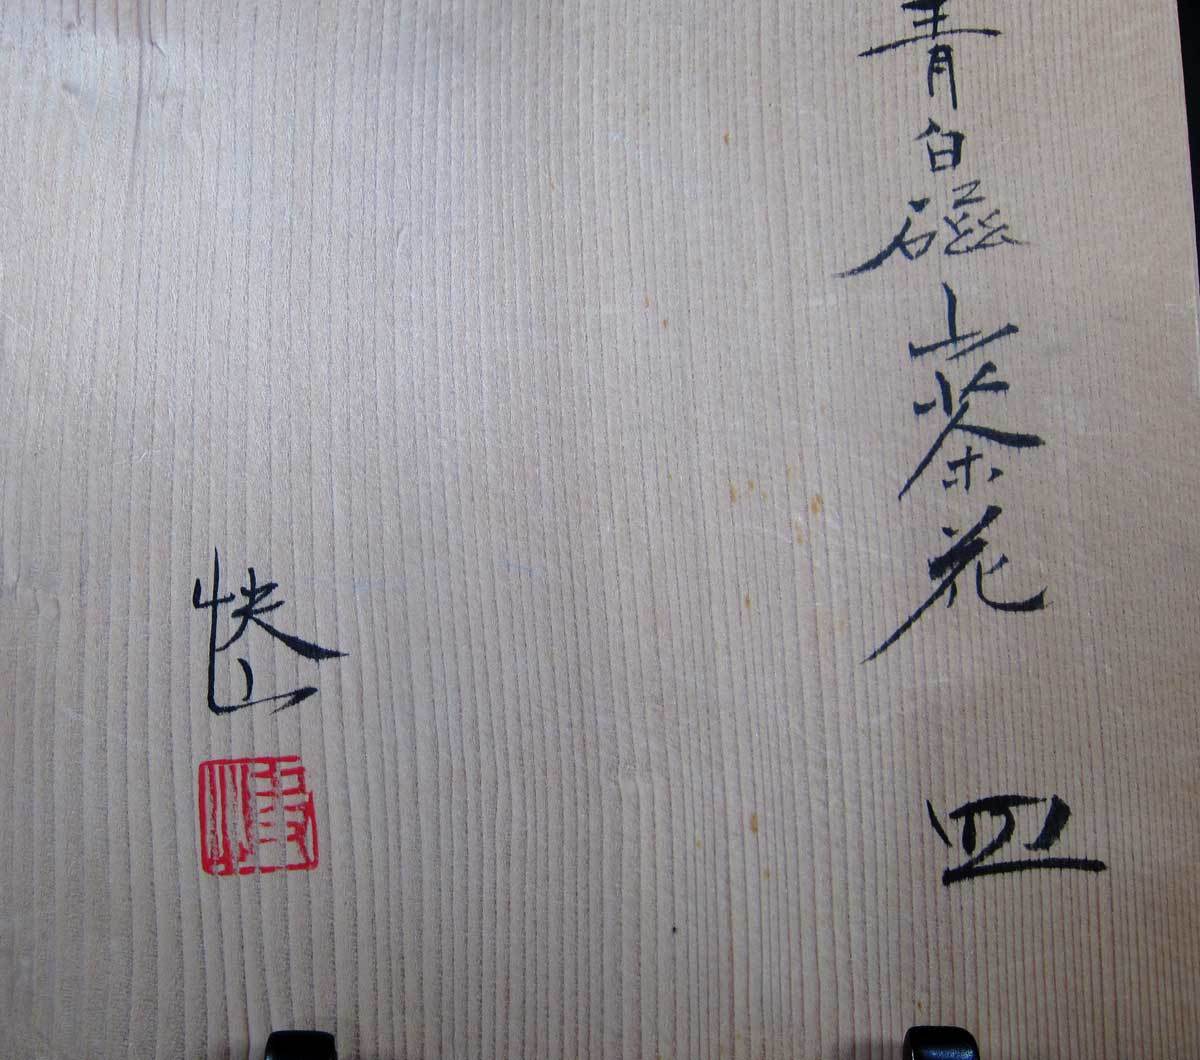 青白磁山茶花 皿
快山